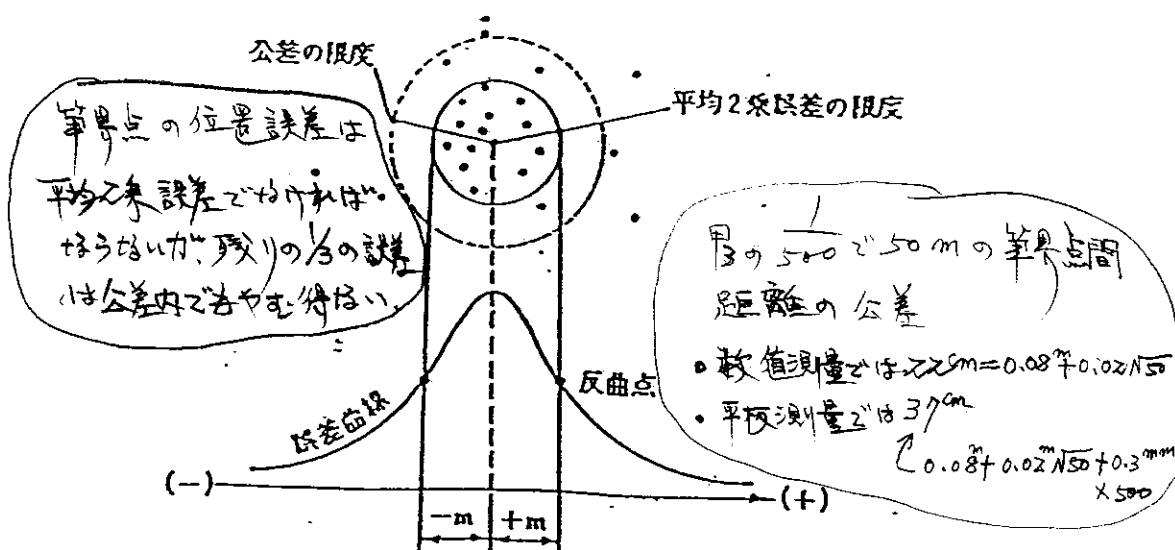 公差の限度
平均2乗誤差の限度
筆界点の位置誤差は
平均2乗誤差でなければ
ならないが、残りの1/3の誤差
は公差内でもやむ得ない。
甲3の 1/500 で 50m の筆界点間
距離の公差
• 数値測量では 22cm=0.08m+0.02√50
• 平板測量では 37cm
0.08m+0.02m√50+0.3mm
×500
誤差曲線
反曲点
(−)
(+)
−m
+m